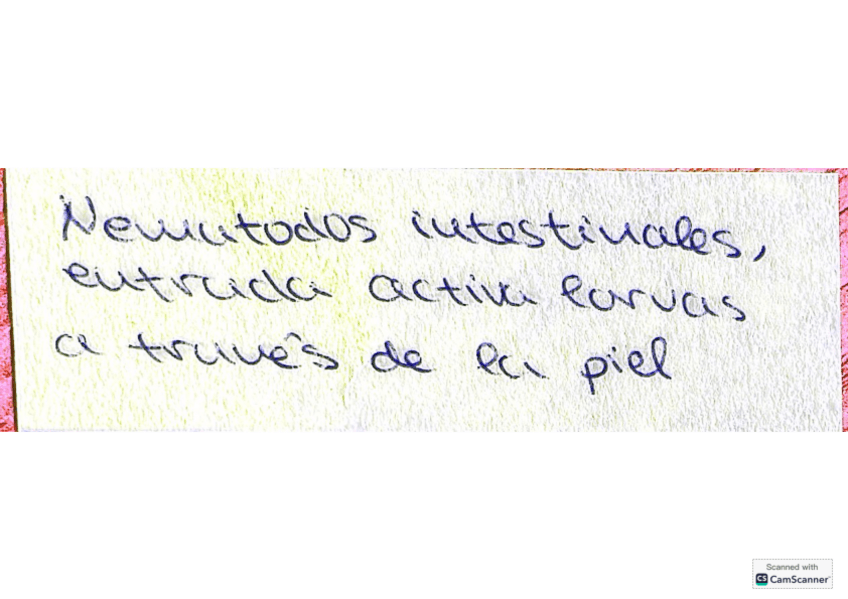 Nematodos intestinales,
entrada activa larvas
a través de la piel
Scanned with
CS CamScanner